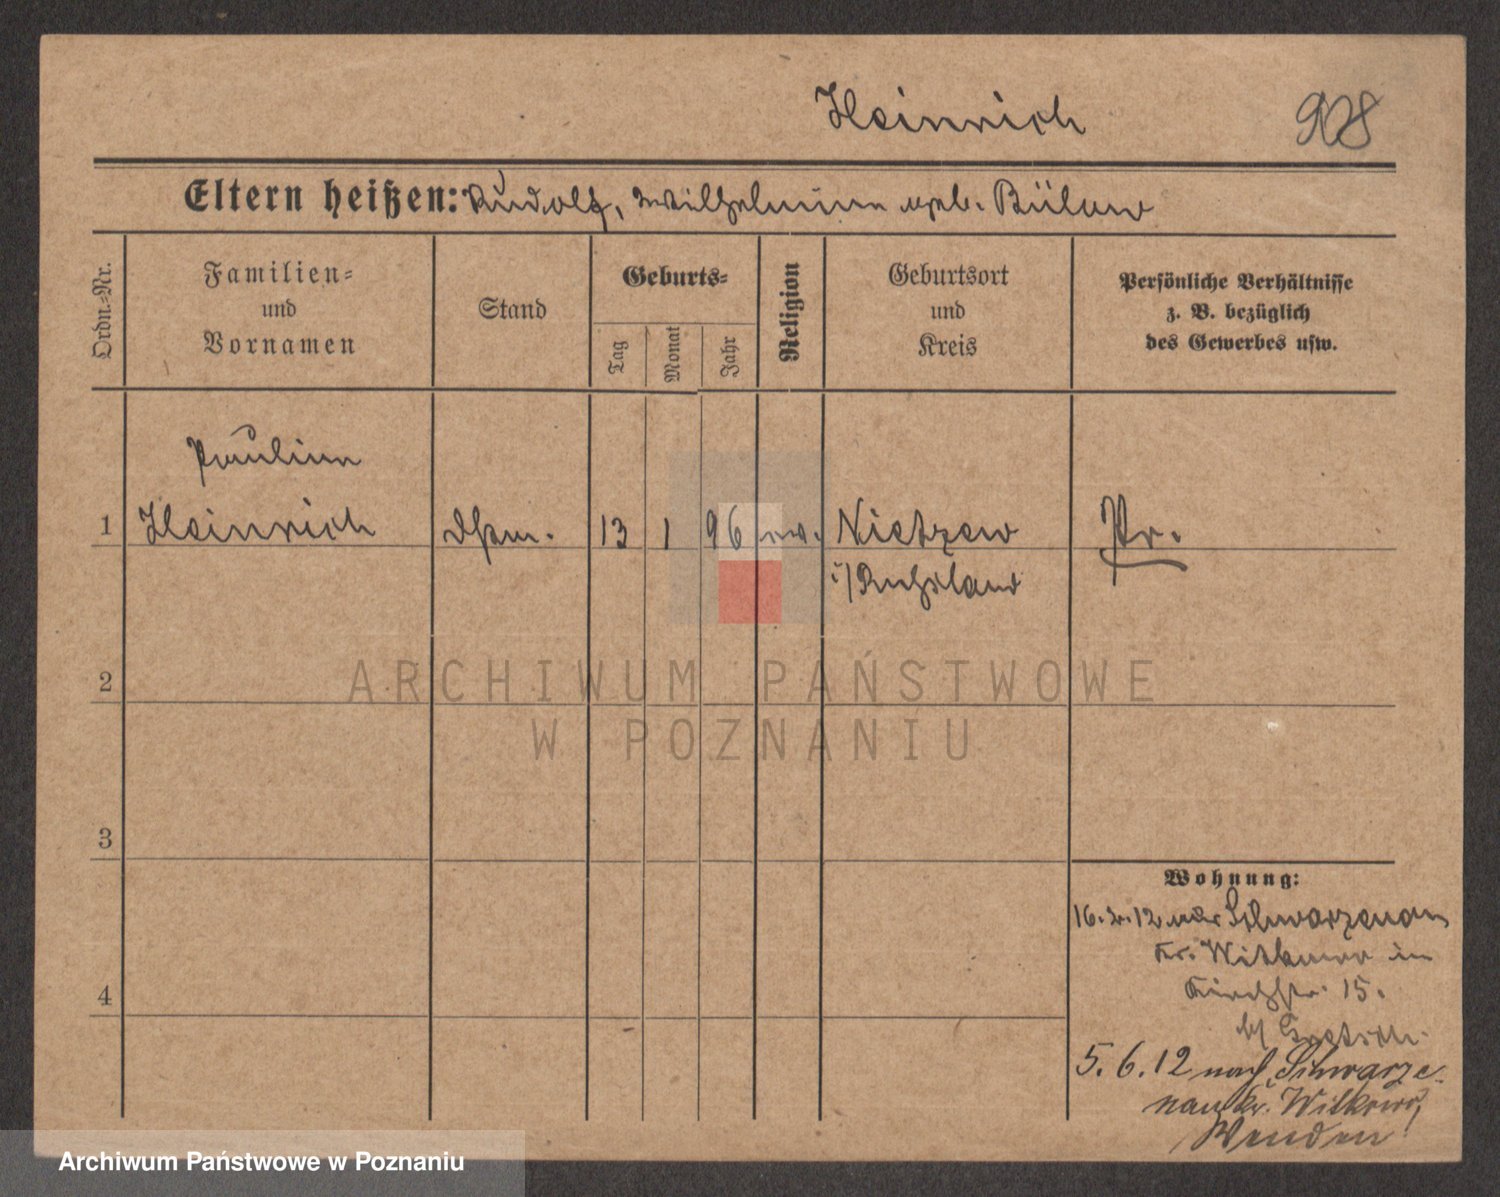 Heinrich 908
Eltern heißen: Rudolf, Wilhelmine geb. Bülow
Ordn.=Nr.
Familien=
und
Vornamen
Stand
Geburts=
Tag
Monat
Jahr
Religion
Geburtsort
und
Kreis
Persönliche Verhältnisse
z. B. bezüglich
des Gewerbes usw.
Pauline
1 Heinrich Dstm. 13 1 96 ev. Nietzew Pr.
i/Rußland
2
ARCHIWUM PAŃSTWOWE
W POZNANIU
3
4
Wohnung:
16. 2. 12 aus Schwarzenau
Kr. Witkowo in
Kirchstr. 15.
b/
5. 6. 12 nach Schwarze-
nau Kr. Witkowo,
Wenden
Archiwum Państwowe w Poznaniu